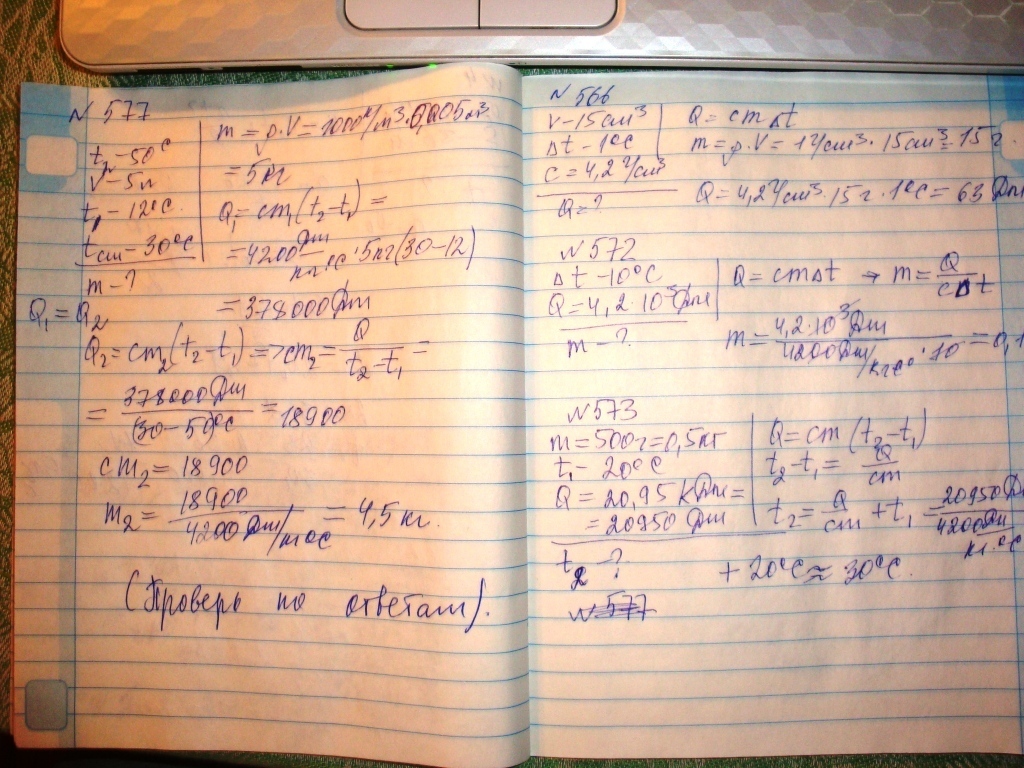 N 577
t2 - 50°C
V - 5л
t1 - 12°C.
tсм - 30°C
m - ?
m = ρ·V = 1000 кг/м³ · 0,005м³
= 5кг
Q1 = cm1(t2-t1) =
= 4200 Дж/кг·°C · 5кг(30-12)
= 378000 Дж
Q1 = Q2
Q2 = cm2(t2-t1) => cm2 = Q/t2-t1 =
= 378000 Дж/(30-50)°C = 18900
cm2 = 18900
m2 = 18900/4200 Дж/кг°C = 4,5 кг.
(Проверь по ответам).
N 566
V - 15 см³
Δt - 1°C
c = 4,2 Дж/см³
Q = ?
Q = cmΔt
m = ρ·V = 1 г/см³ · 15 см³ = 15 г.
Q = 4,2 Дж/см³ · 15 г · 1°C = 63 Дж
N 572
Δt - 10°C
Q = 4,2·10³ Дж
m - ?
Q = cmΔt → m = Q/cΔt
m = 4,2·10³ Дж/4200 Дж/кг°C · 10 = 0,1
N 573
m = 500г = 0,5кг
t1 - 20°C
Q = 20,95 кДж =
= 20950 Дж
t2 - ?
Q = cm (t2-t1)
t2-t1 = Q/cm
t2 = Q/cm + t1 = 20950 Дж/4200 Дж/кг·°C
+ 20°C ≈ 30°C.
N 577